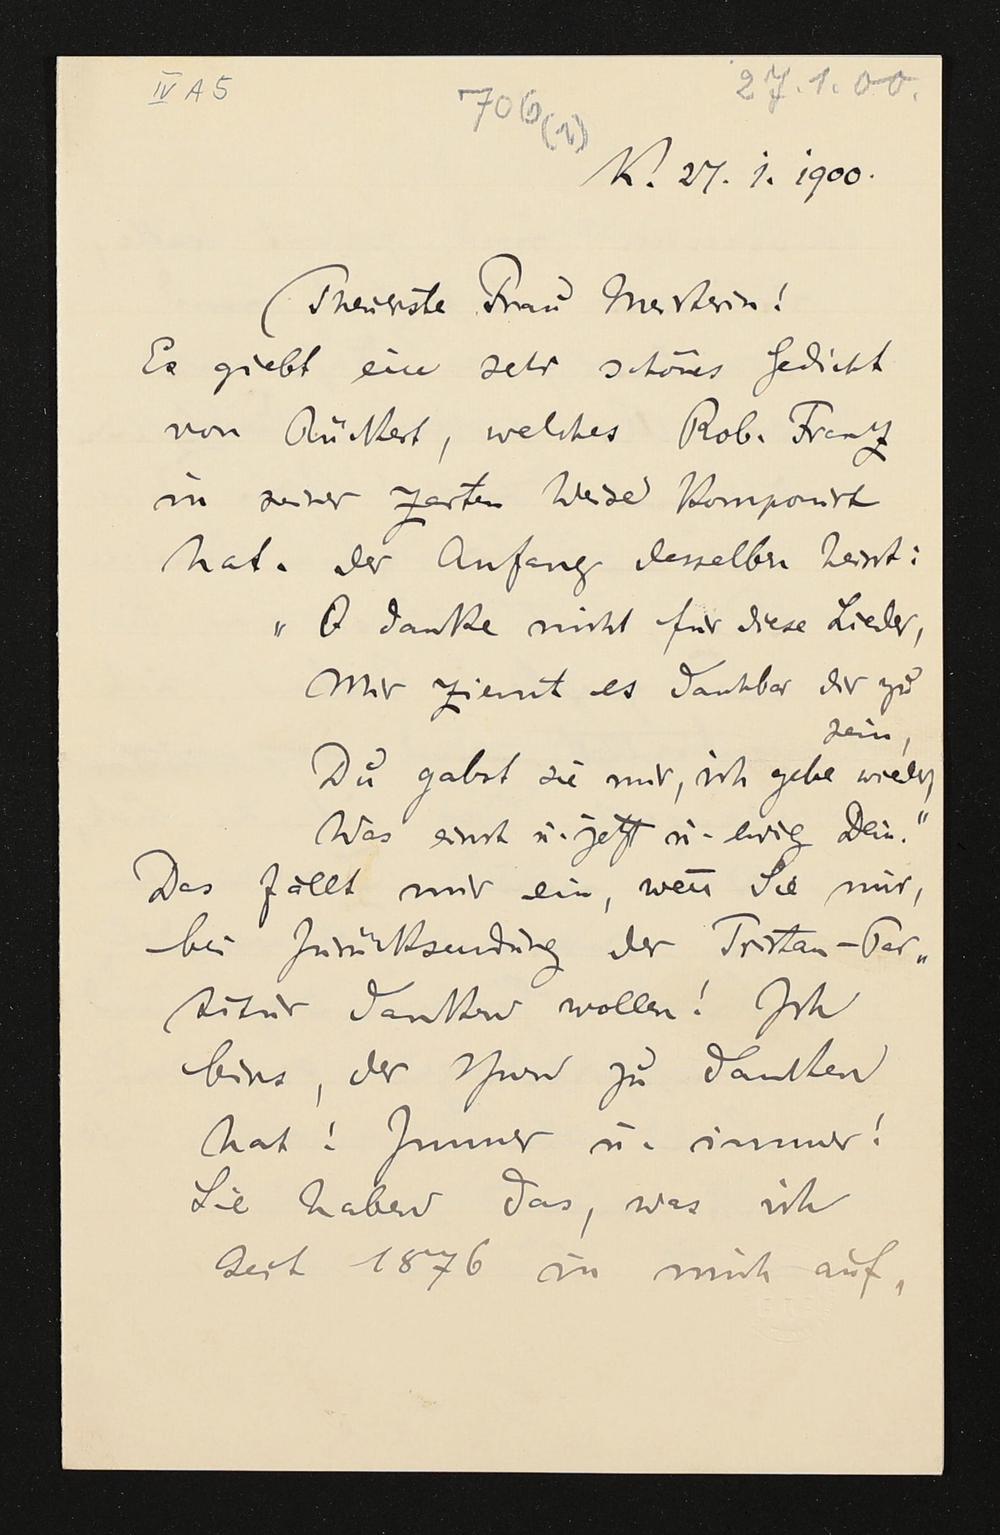 IV A 5
706(1)
27.1.00.
K. 27. 1. 1900.
Theuerste Frau Meisterin!
Es giebt ein sehr schönes Gedicht
von Rückert, welches Rob. Franz
in seiner zarten Weise komponirt
hat. Der Anfang desselben heisst:
„O danke nicht für diese Lieder,
Mir ziemt es dankbar dir zu
sein,
Du gabst sie mir, ich gebe wieder,
Was einst u. jetzt u. ewig Dein."
Das fällt mir ein, wen̅ Sie mir,
bei Zurücksendung der Tristan-Par„
titur danken wollen! Ich
bins, der Ihnen zu danken
hat! Immer u. immer!
Sie haben das, was ich
seit 1876 in mich auf„